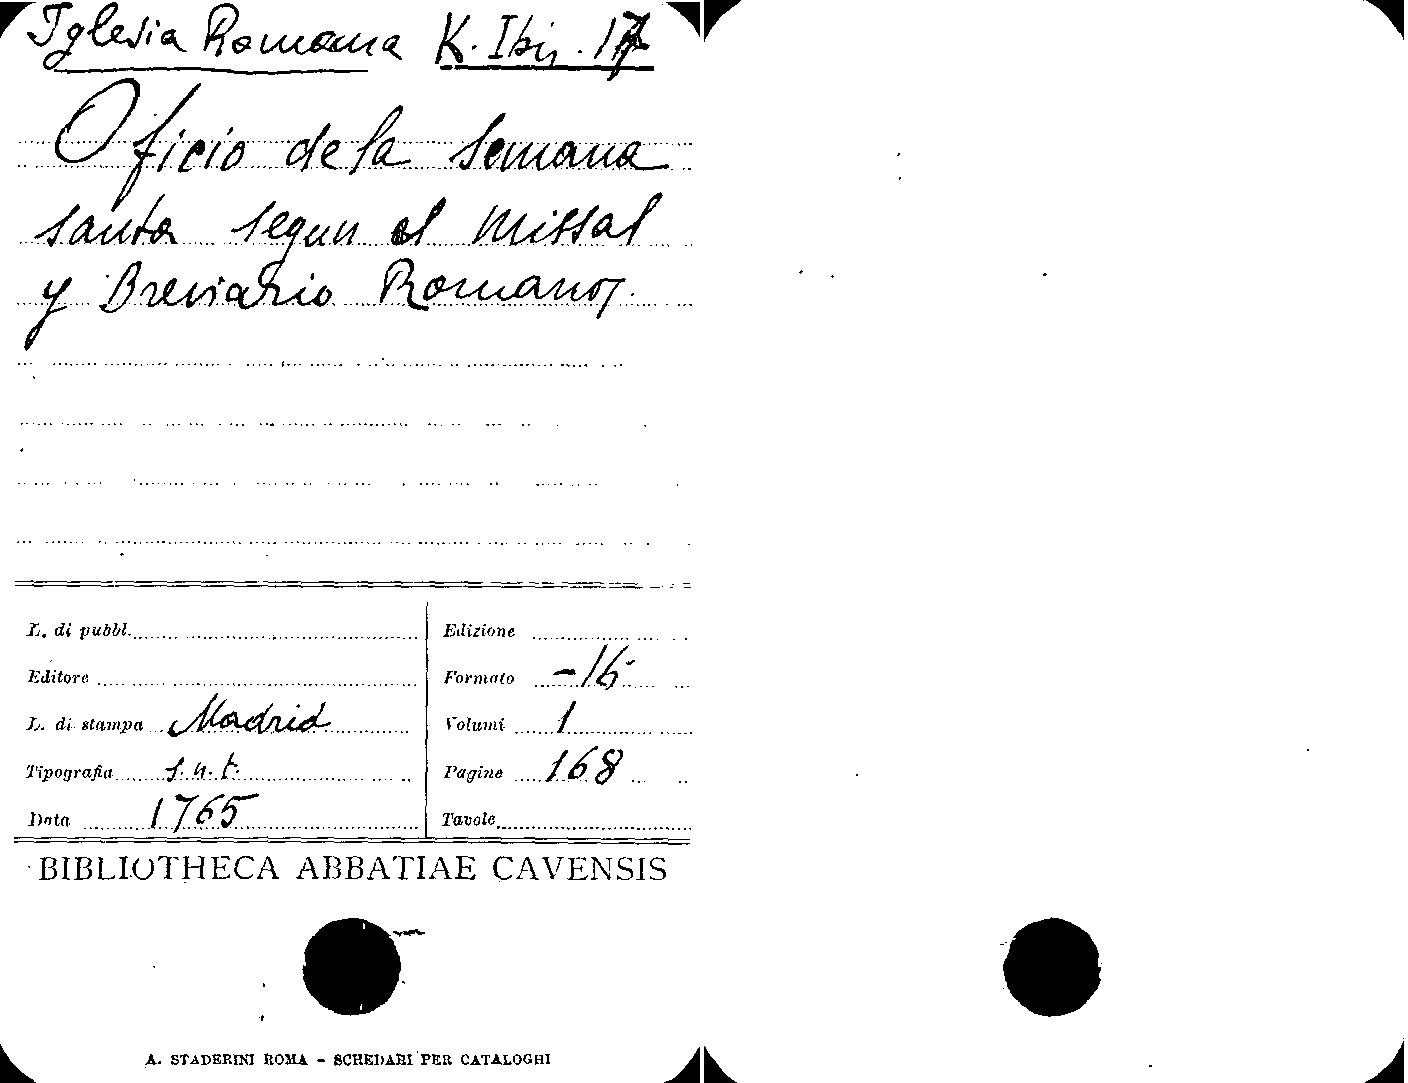 Iglesia Romana K. Ibis. 17
Oficio de la semana
santa segun el Missal
y Breviario Romanos.
L. di pubbl.
Edizione
Editore
Formato -16
L. di stampa Madrid
Volumi 1
Tipografia s.n.t.
Pagine 168
Data 1765
Tavole
BIBLIOTHECA ABBATIAE CAVENSIS
A. STADERINI ROMA - SCHEDARI PER CATALOGHI